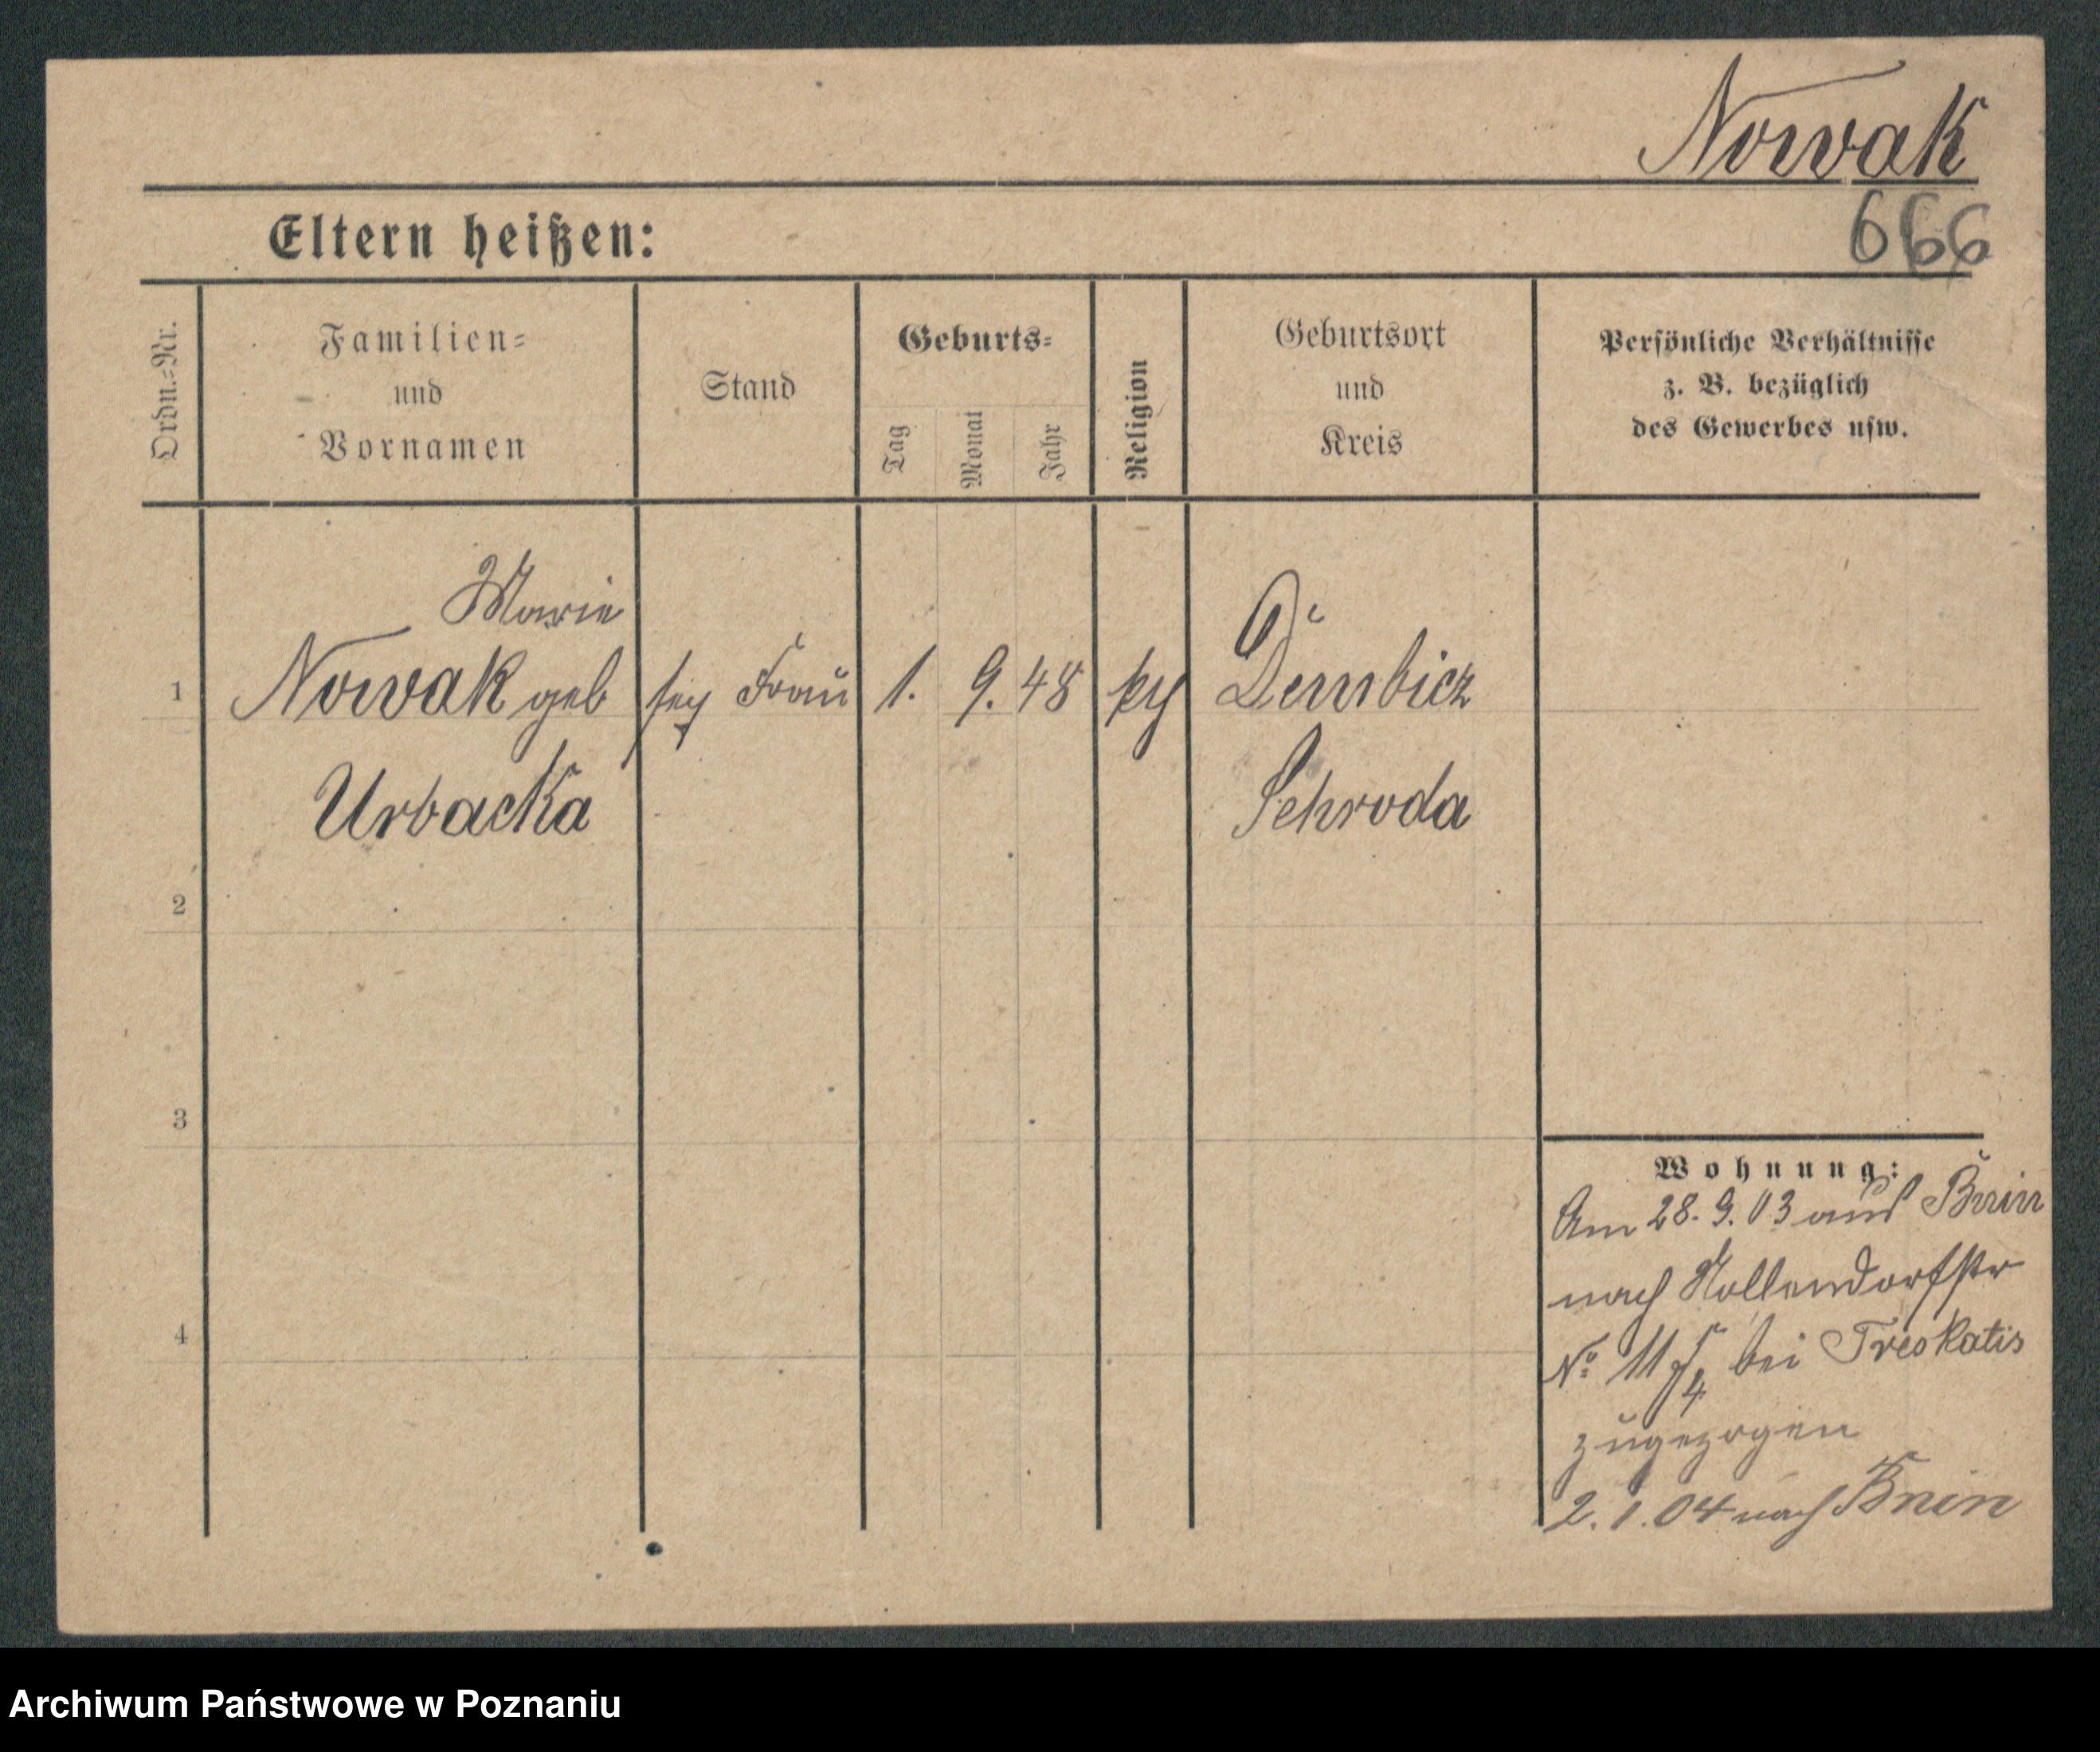 Nowak
Eltern heißen:
666
Ordn.=Nr.
Familien=
und
Vornamen
Stand
Geburts=
Tag
Monat
Jahr
Religion
Geburtsort
und
Kreis
Persönliche Verhältnisse
z. B. bezüglich
des Gewerbes usw.
Marie
1 Nowak geb Frau 1. 9. 48 Dembicz
Urbacka Schroda
2
3
4
Wohnung:
Am 28. 9. 03 aus Bnin
nach Nollendorfstr
No 11 bei Treskatis
zugezogen
2. 1. 04 nach Bnin
Archiwum Państwowe w Poznaniu